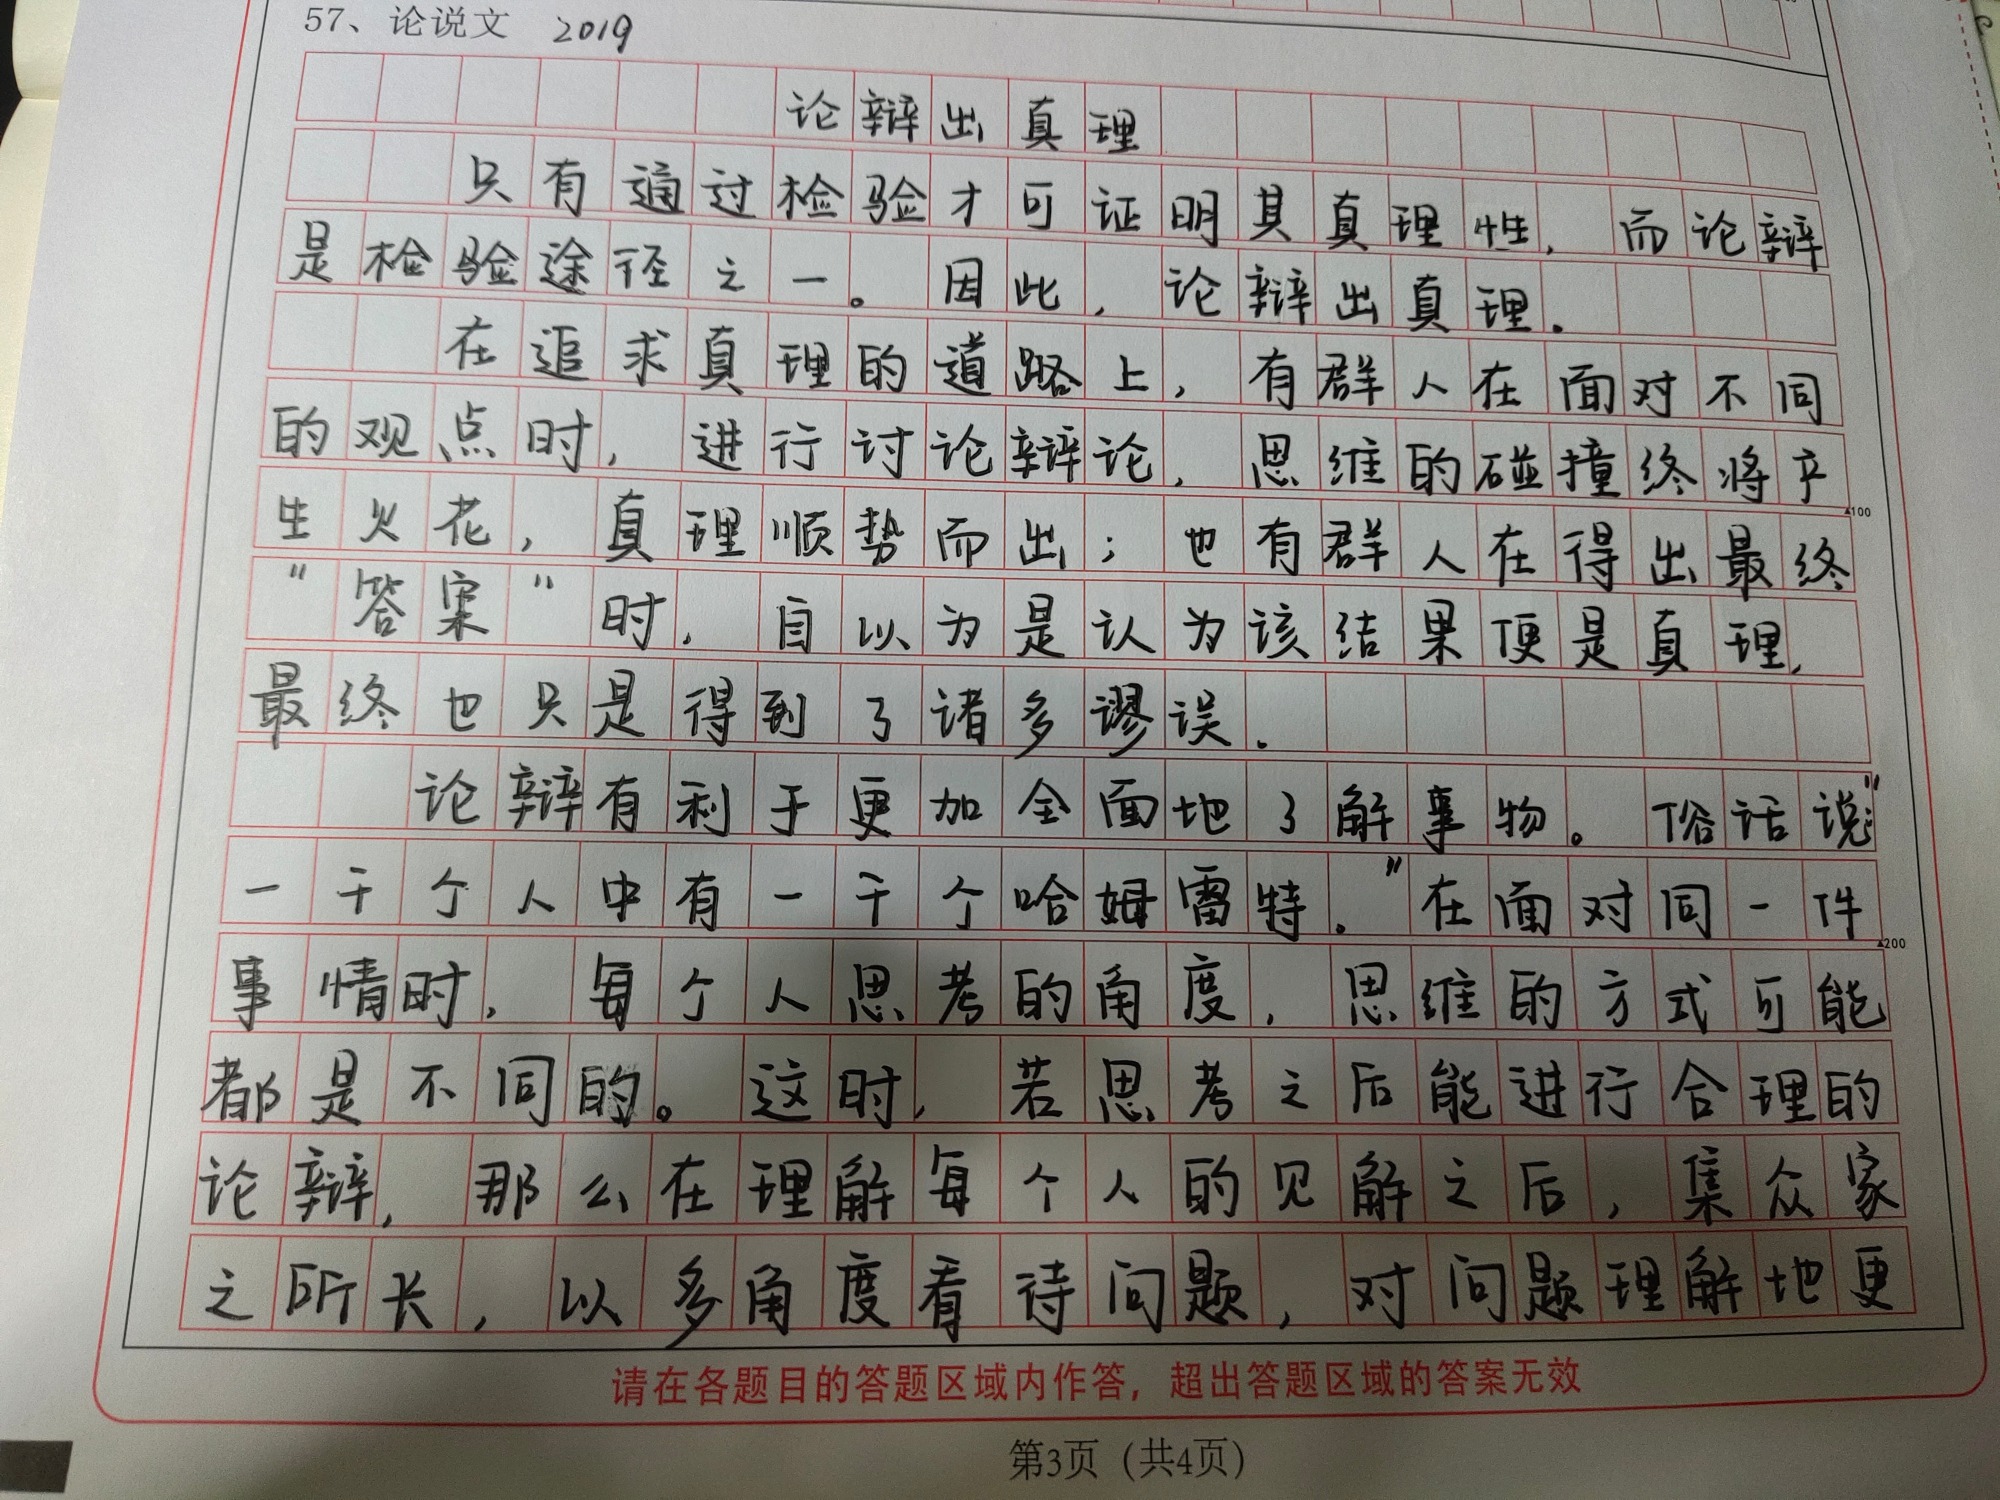 57、论说文 2019
论辩出真理
只有通过检验才可证明其真理性，而论辩
是检验途径之一。因此，论辩出真理。
在追求真理的道路上，有群人在面对不同
的观点时，进行讨论辩论，思维的碰撞终将产
▲100
生火花，真理顺势而出；也有群人在得出最终
“答案”时，自以为是认为该结果便是真理，
最终也只是得到了诸多谬误。
论辩有利于更加全面地了解事物。俗话说：“
一千个人中有一千个哈姆雷特。”在面对同一件
▲200
事情时，每个人思考的角度，思维的方式可能
都是不同的。这时，若思考之后能进行合理的
论辩，那么在理解每个人的见解之后，集众家
之所长，以多角度看待问题，对问题理解地更
请在各题目的答题区域内作答，超出答题区域的答案无效
第3页（共4页）